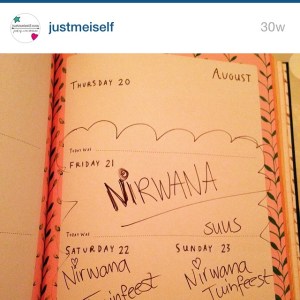 justmeiself
30w
THURSDAY 20
AUGUST
TODAY WAS
FRIDAY 21
NIRWANA
TODAY WAS
SUUS
SATURDAY 22
SUNDAY 23
Nirwana
Nirwana
Tuinfeest
Tuinfeest